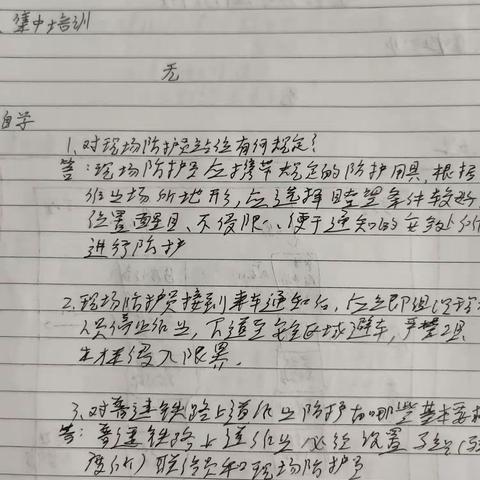 、集中培训
无
自学
1、对现场防护员站位有何规定？
答：现场防护员应携带规定的防护用具，根据
作业场所地形，应选择瞭望条件较好
位置醒目、不侵限、便于通知的在处所
进行防护
2、现场防护员接到来车通知后，应立即组织现
人员停止作业，下道至安全区域避车，严禁工具
侵入限界．
3、对普速铁路上道作业防护有哪些基本要
答：普速铁路上道作业必须设置
度所）联络员和现场防护员